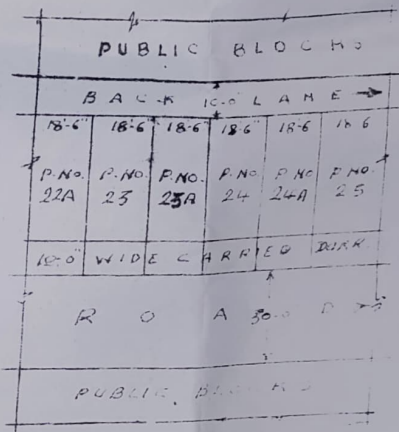 PUBLIC BLOCKS
BACK 10-0" LANE
18'-6" 18'-6" 18'-6" 18'-6" 18'-6 18 6
P.NO. 22A P.NO. 23 P.NO. 23A P.NO. 24 P.NO. 24A P.NO. 25
10-0" WIDE CARRIED
ROAD
PUBLIC